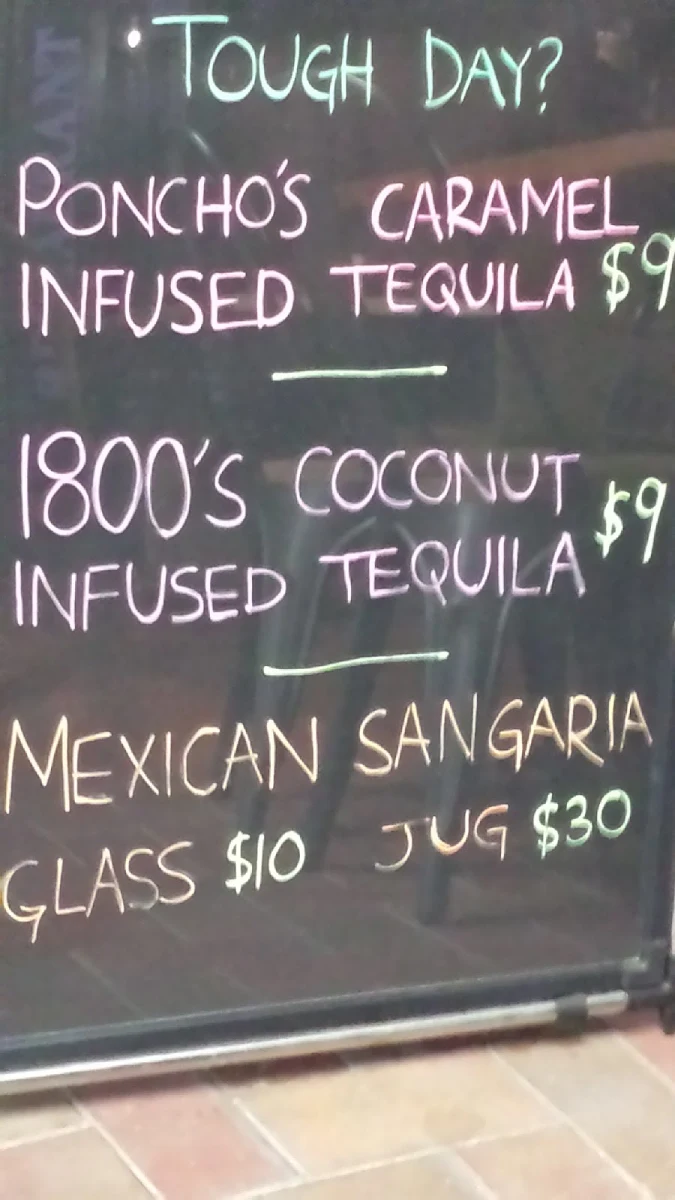 TOUGH DAY?
PONCHO'S CARAMEL
INFUSED TEQUILA $9
1800'S COCONUT
INFUSED TEQUILA $9
MEXICAN SANGARIA
GLASS $10 JUG $30